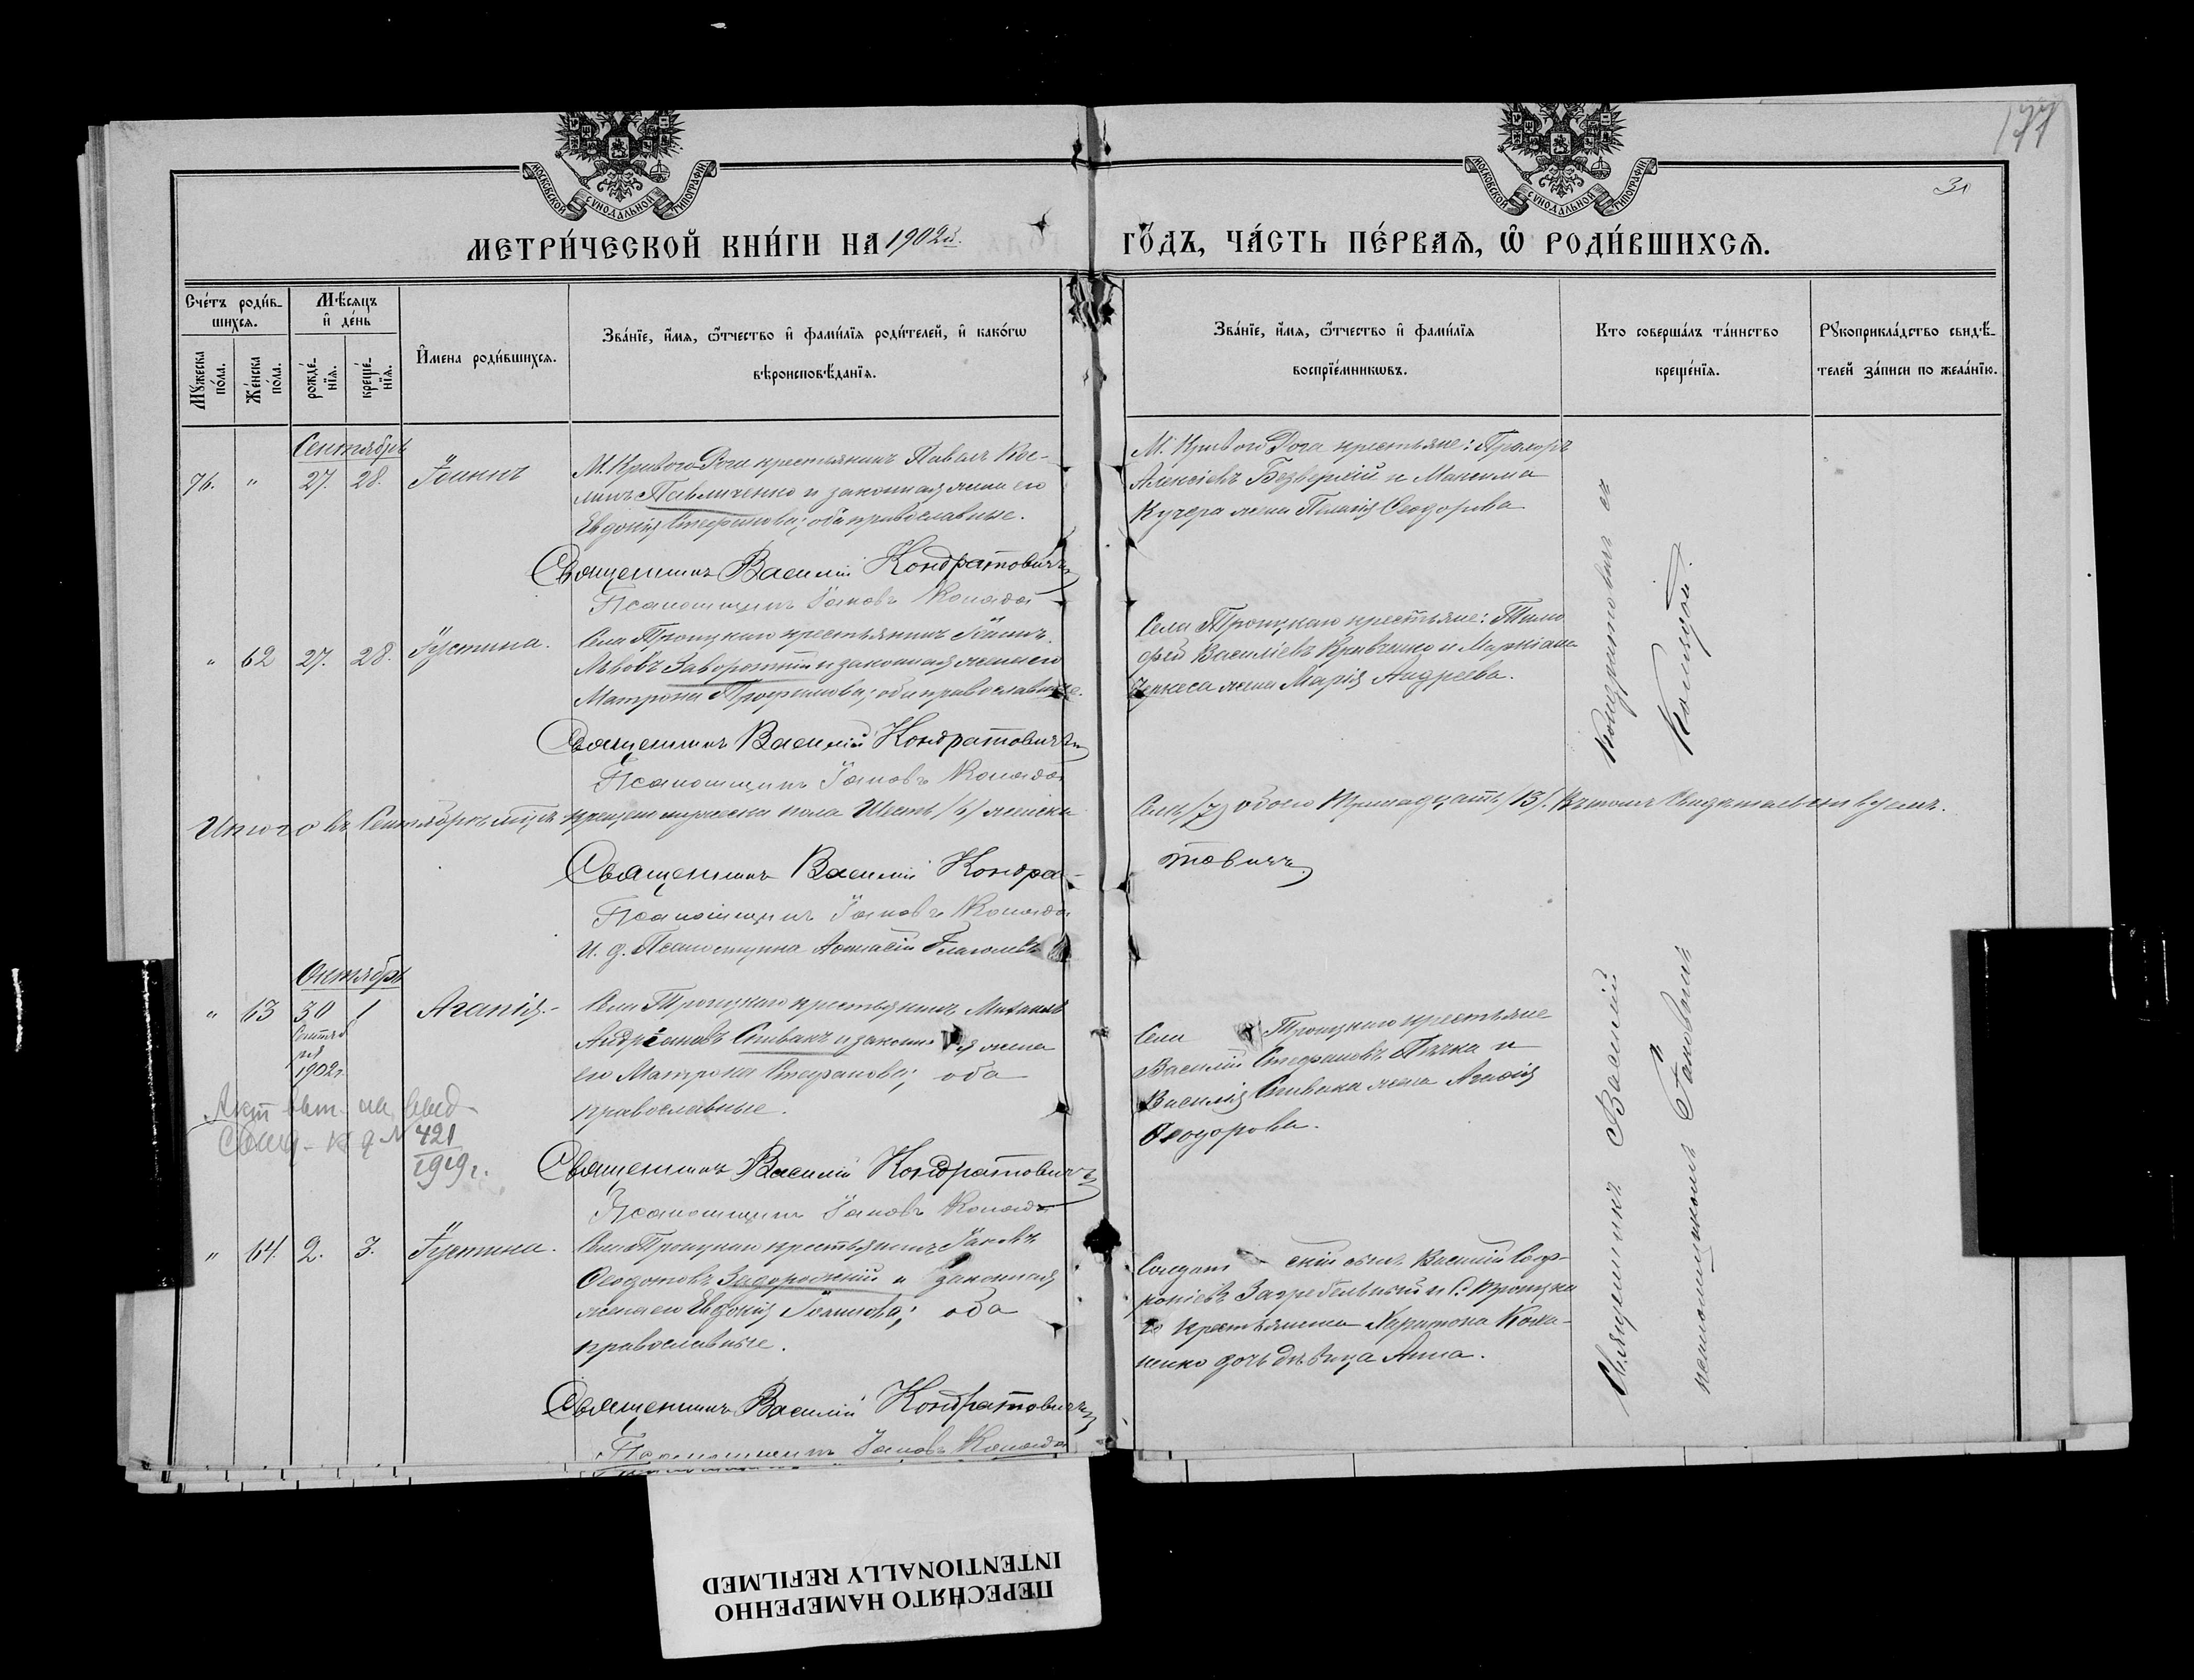 177
31
МОСКОВСКОЙ СУНОДАЛЬНОЙ ТИПОГРАФИИ
МОСКОВСКОЙ СУНОДАЛЬНОЙ ТИПОГРАФИИ
МЕТРИ́ЧЕСКОЙ КНИ́ГИ НА 1902й.
ГО́ДЪ, ЧА́СТЬ ПЕ́РВАѦ, Ѡ҆ РОДИ́ВШИХСѦ.
Сче́тъ роди́в-
шихсѧ.
Мѣ́сѧцъ
и҆ де́нь
Мꙋ́жеска
по́ла.
Же́нска
по́ла.
рожде́-
нїѧ.
креще́-
нїѧ.
И҆мена роди́вшихсѧ.
Зва́нїе, и҆́мѧ, ѻ҆́тчество и҆ фами́лїѧ роди́телей, и҆ како́гѡ
вѣроисповѣ́данїѧ.
Зва́нїе, и҆́мѧ, ѻ҆́тчество и҆ фами́лїѧ
воспрїе́мникѡвъ.
Кто соверша́лъ та́инство
креще́нїѧ.
Рꙋкоприкла́дство свидѣ́-
телей за́писи по жела́нїю.
Сентябрь
76. " 27. 28. Іоаннъ
М. Кривого-Рога крестьянинъ Павелъ Кос-
минъ Павличенко и законная жена его
Евдокія Стефанова; оба православные.
Священникъ Василій Кондратовичъ
Псаломщикъ Іаковъ Коладо
М. Кривого Рога крестьяне: Прохоръ
Алексіевъ Безверхій и Максима
Кучера жена Пелагія Ѳеодорова
" 62 27. 28. Іустина.
Села Троицкаго крестьянинъ Іоаннъ
Львовъ Заворотній и законная жена его
Матрона Трофимова; оба православные.
Священникъ Василій Кондратовичъ
Псаломщикъ Іаковъ Коладо
Села Троицкаго крестьяне: Тимо
фей Василіевъ Кривченко и Маркіана
Черкеса жена Марія Андреева.
Итого въ Сентябрѣ мѣсяцѣ крещено мужеска пола Шесть /6/ женска
Семь /7/ обоего Тринадцать /13/. Въ томъ свидѣтельствуемъ.
Священникъ Василій Кондра-
товичъ
Псаломщикъ Іаковъ Коладо
И. д. Псаломщика
Октябрь
" 63 30 1 Агапія.-
Сентяб
ря
1902г.
Села Троицкаго крестьянинъ Михаилъ
Андріановъ Спивакъ и законная жена
его Матрона Стефанова; оба
православные.
Священникъ Василій Кондратовичъ
Псаломщикъ Іаковъ Коладо
Села Троицкаго крестьяне
Василій Стефановъ Пачка и
Василія Спивака жена Агафія
Ѳеодорова.
421
1919 г.
" 64. 2. 3. Іустина.
Села Троицкаго крестьянинъ Іаковъ
Ѳеодотовъ Задорожній и законная
жена его Евдокія Іоаннова; оба
православные.
Священникъ Василій Кондратовичъ
Псаломщикъ Іаковъ Коладо
Солдатскій сынъ Василій Соф-
роніевъ Загребельный и С. Троицка
го крестьянина Харитона Кожа-
ненко дочь дѣвица Анна.
Священникъ Василій Кондратовичъ съ
псаломщикомъ Іаковомъ Коладой.
ПЕРЕСНЯТО НАМЕРЕННО
INTENTIONALLY REFILMED